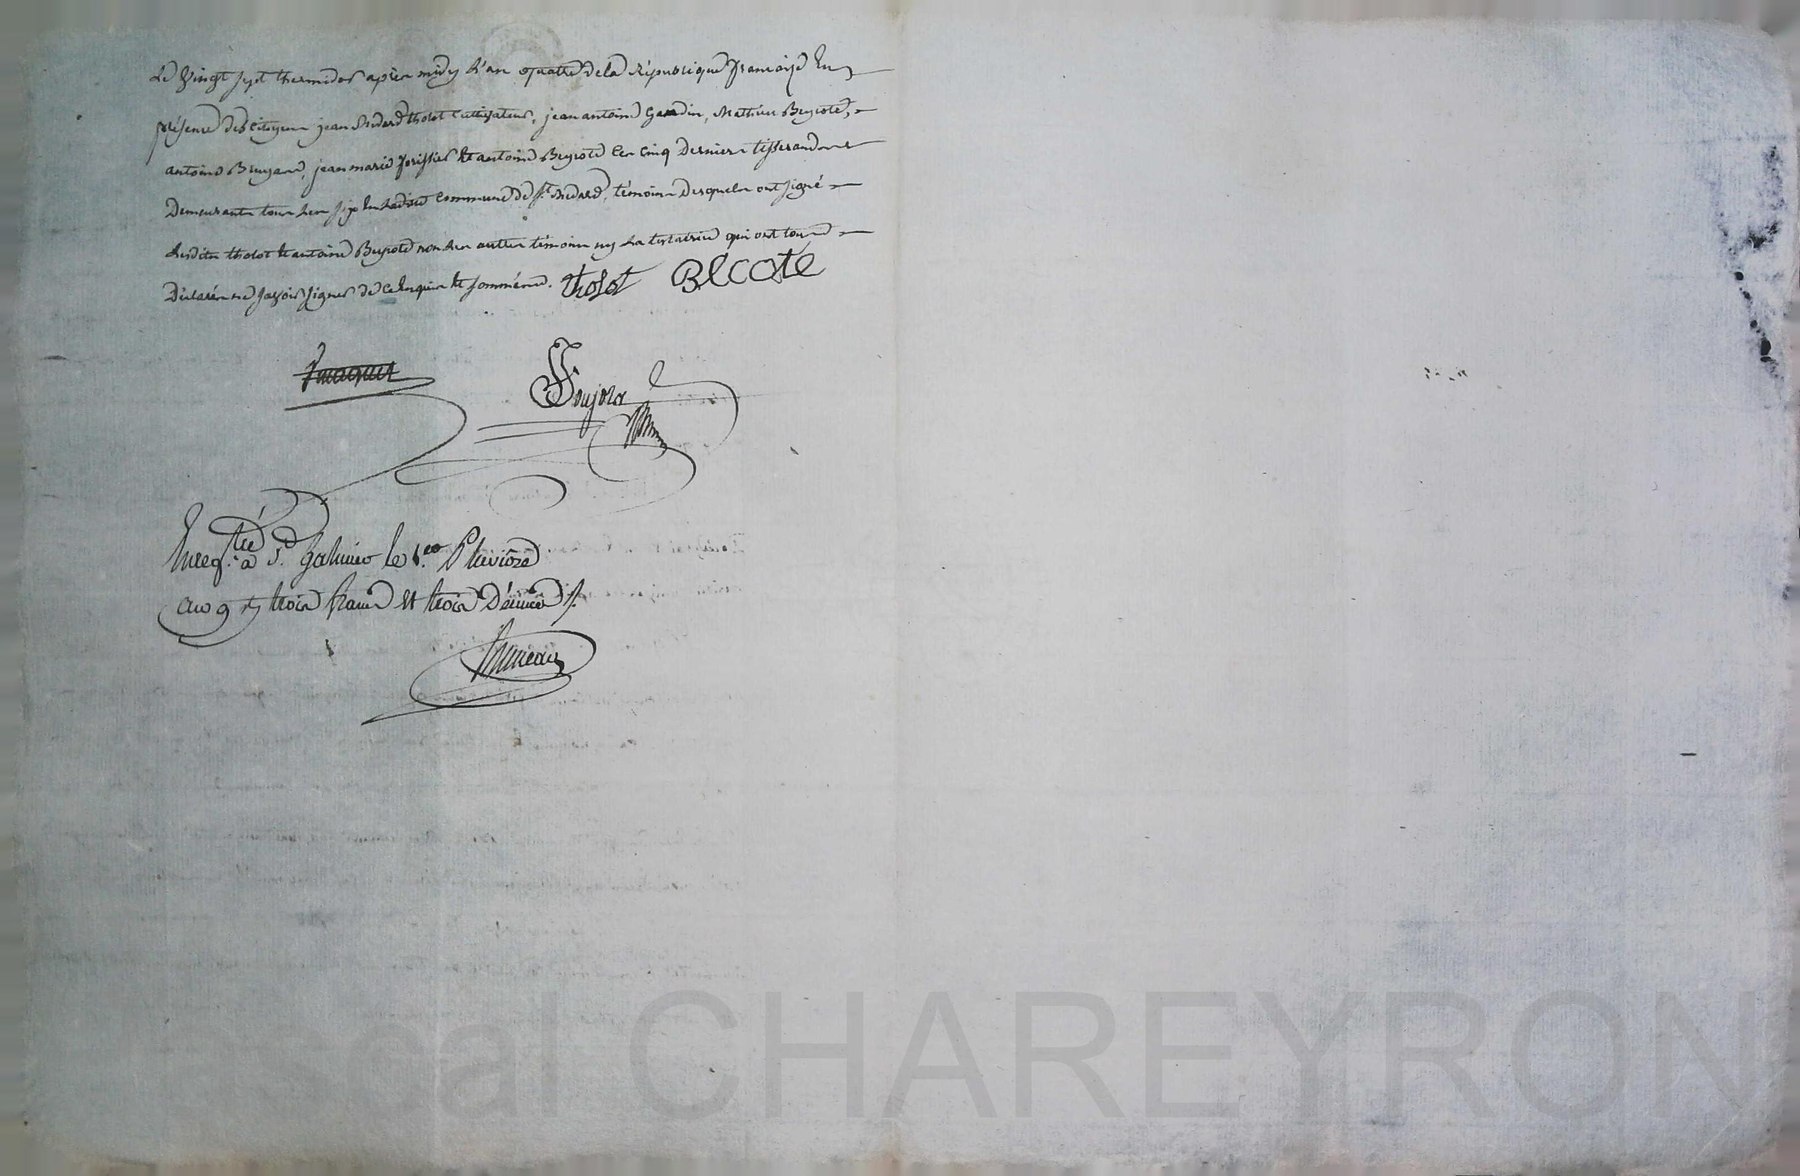 Le vingt sept thermidor après midy l'an quatre de la République française En
présence des Citoyens jean Medard tholot Cultivateur, jean antoine Gardin, Mathieu Beycote,
antoine Bruyard, jean marie et antoine Beycote les cinq Derniers tisserands
Demeurants tous les six en ladite Commune de St. Medard, témoins Desquels ont signé
Lesdits tholot et antoine Beycote non les autres témoins ny la testatrice qui ont tous
Déclarés ne savoir signer de ce enquis et sommés. tholot BECOTE
Enreg.tré a St. Galmier le 1.er Pluviose
an 9 trois francs et trois Décimes
Pascal CHAREYRON